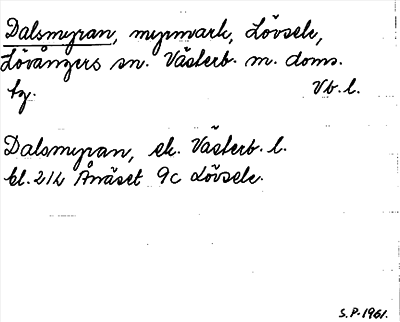 Dalsmyran, myrmark, Lövsele,
Lövångers sn. Västerb. m. doms.
tg. Vb. l.
Dalsmyran, ek. Västerb. l.
bl. 21L Ånäset 9c Lövsele.
S.P. 1961.